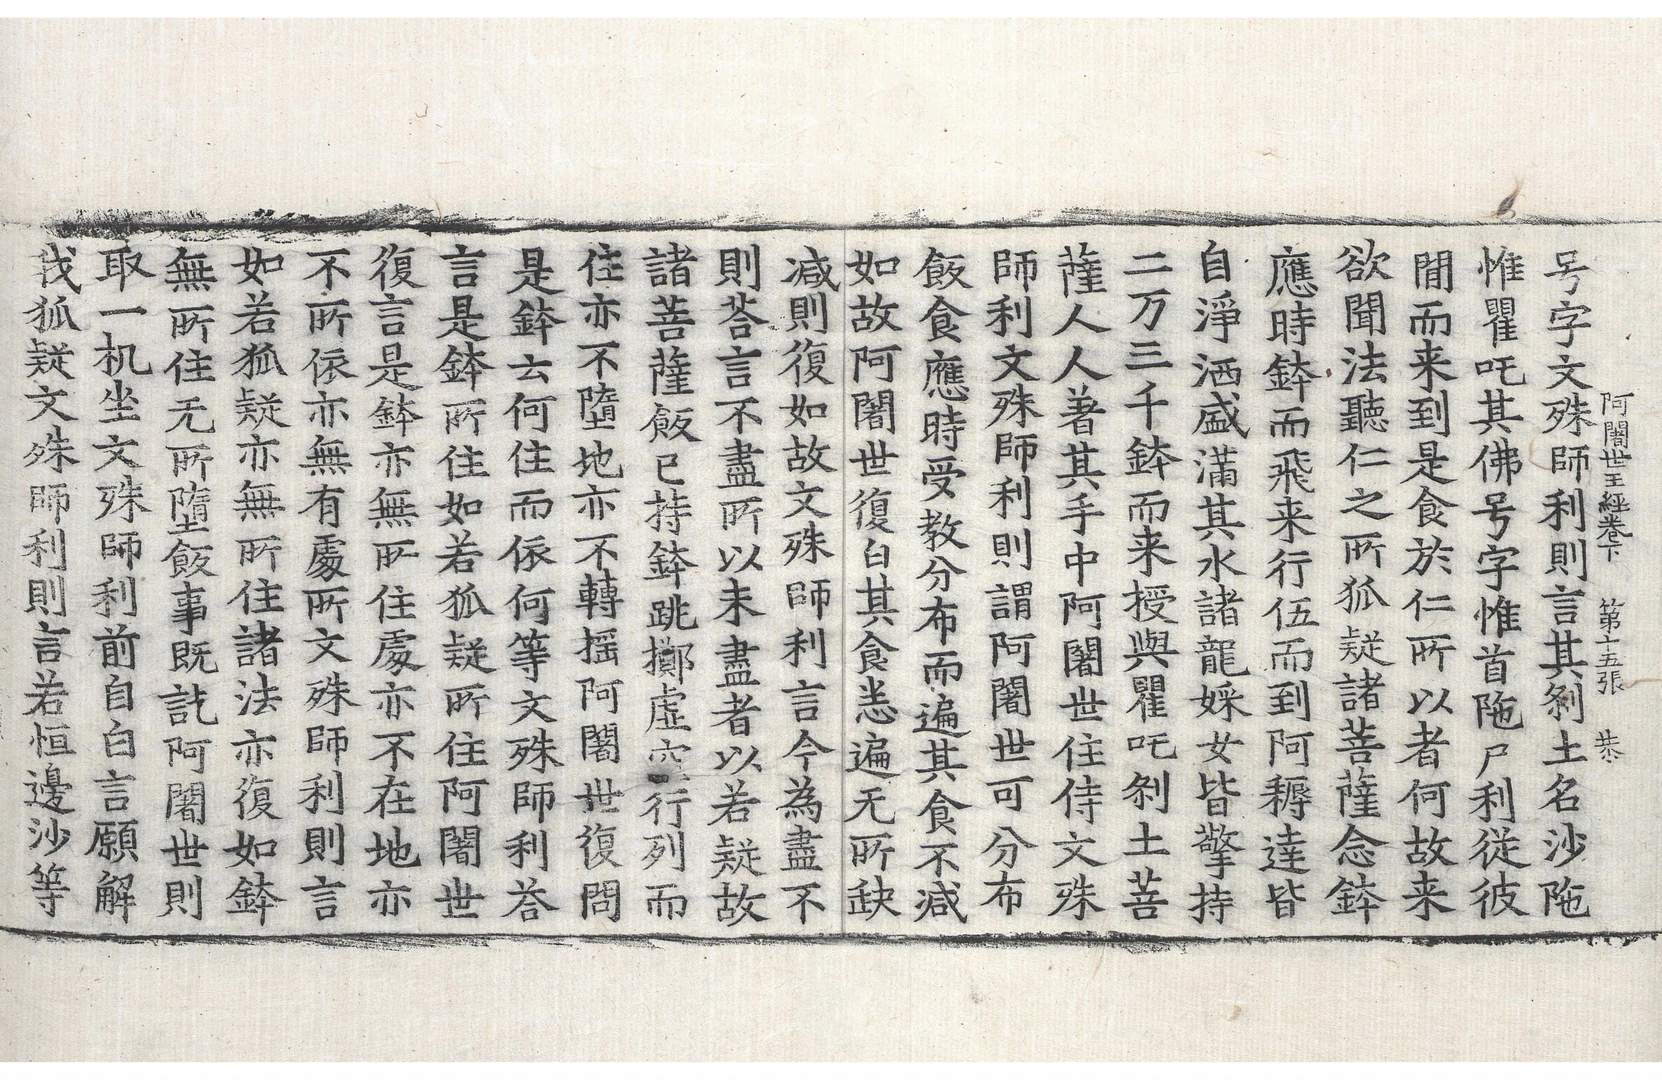 阿闍世王經卷下　第十五張　恭
号字文殊師利則言其剎土名沙陁
惟瞿吒其佛号字惟首陁尸利従彼
聞而来到是食於仁所以者何故来
欲聞法聽仁之所狐疑諸菩薩念鉢
應時鉢而飛来行伍而到阿耨達皆
自淨洒盛滿其水諸龍婇女皆擎持
二万三千鉢而来授與瞿吒剎土菩
薩人人著其手中阿闍世住侍文殊
師利文殊師利則謂阿闍世可分布
飯食應時受教分布而遍其食不减
如故阿闍世復白其食悉遍无所缺
减則復如故文殊師利言今為盡不
則荅言不盡所以未盡者以若疑故
諸菩薩飯已持鉢跳擲虛空行列而
住亦不墮地亦不轉揺阿闍世復問
是鉢云何住而依何等文殊師利荅
言是鉢所住如若狐疑所住阿闍世
復言是鉢亦無所住處亦不在地亦
不所依亦無有處所文殊師利則言
如若狐疑亦無所住諸法亦復如鉢
無所住无所墮飯事既訖阿闍世則
取一机坐文殊師利前自白言願解
我狐疑文殊師利則言若恒邊沙等